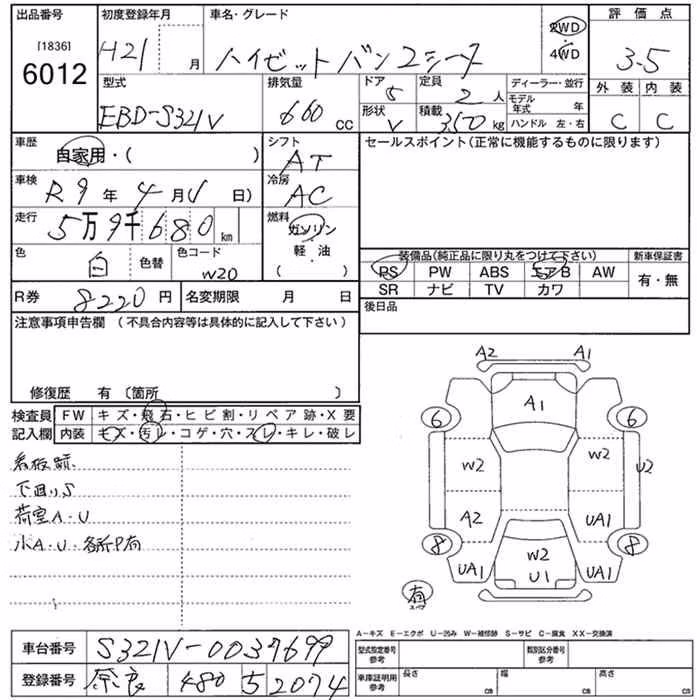 出品番号 初度登録年月 車名・グレード 評価点
[1836] 6012 H21 月 ハイゼットバン2シーター 2WD 4WD 3.5
型式 排気量 ドア 定員 ディーラー・並行 外装 内装
EBD-S321V 660 cc 5 2人 モデル年式 年
形状 V 積載 350kg ハンドル 左・右 C C
車歴 自家用・( ) シフト AT セールスポイント(正常に機能するものに限ります)
車検 R9年4月 日) 冷房 AC
走行 5万9千680km 燃料 ガソリン
軽・油
( )
色 白 色替 色コード W20
装備品(純正品に限り丸をつけて下さい) 新車保証書
PS PW ABS エアB AW 有・無
SR ナビ TV カワ
R券 8220円 名変期限 月 日 後日品
注意事項申告欄 (不具合内容等は具体的に記入して下さい)
修復歴 有 〔箇所 〕
検査員記入欄 FW キズ・飛石・ヒビ割・リペア跡・X要
内装 キズ・汚レ・コゲ・穴・スレ・キレ・破レ
看板跡
下廻りS
荷室A・U
小A・U・各所P有
A2 A1
A1
6 6
W2 W2 U2
A2 UA1
8 8
W2
UA1 U1 UA1
有
スペア
A-キズ E-エクボ U-凹み W-補修跡 S-サビ C-腐食 XX-交換済
車台番号 S321V-0037699 型式指定番号 参考 類別区分番号 参考
登録番号 奈良 480 52074 車庫証明用 参考 長さ CB 幅 CB 高さ CB